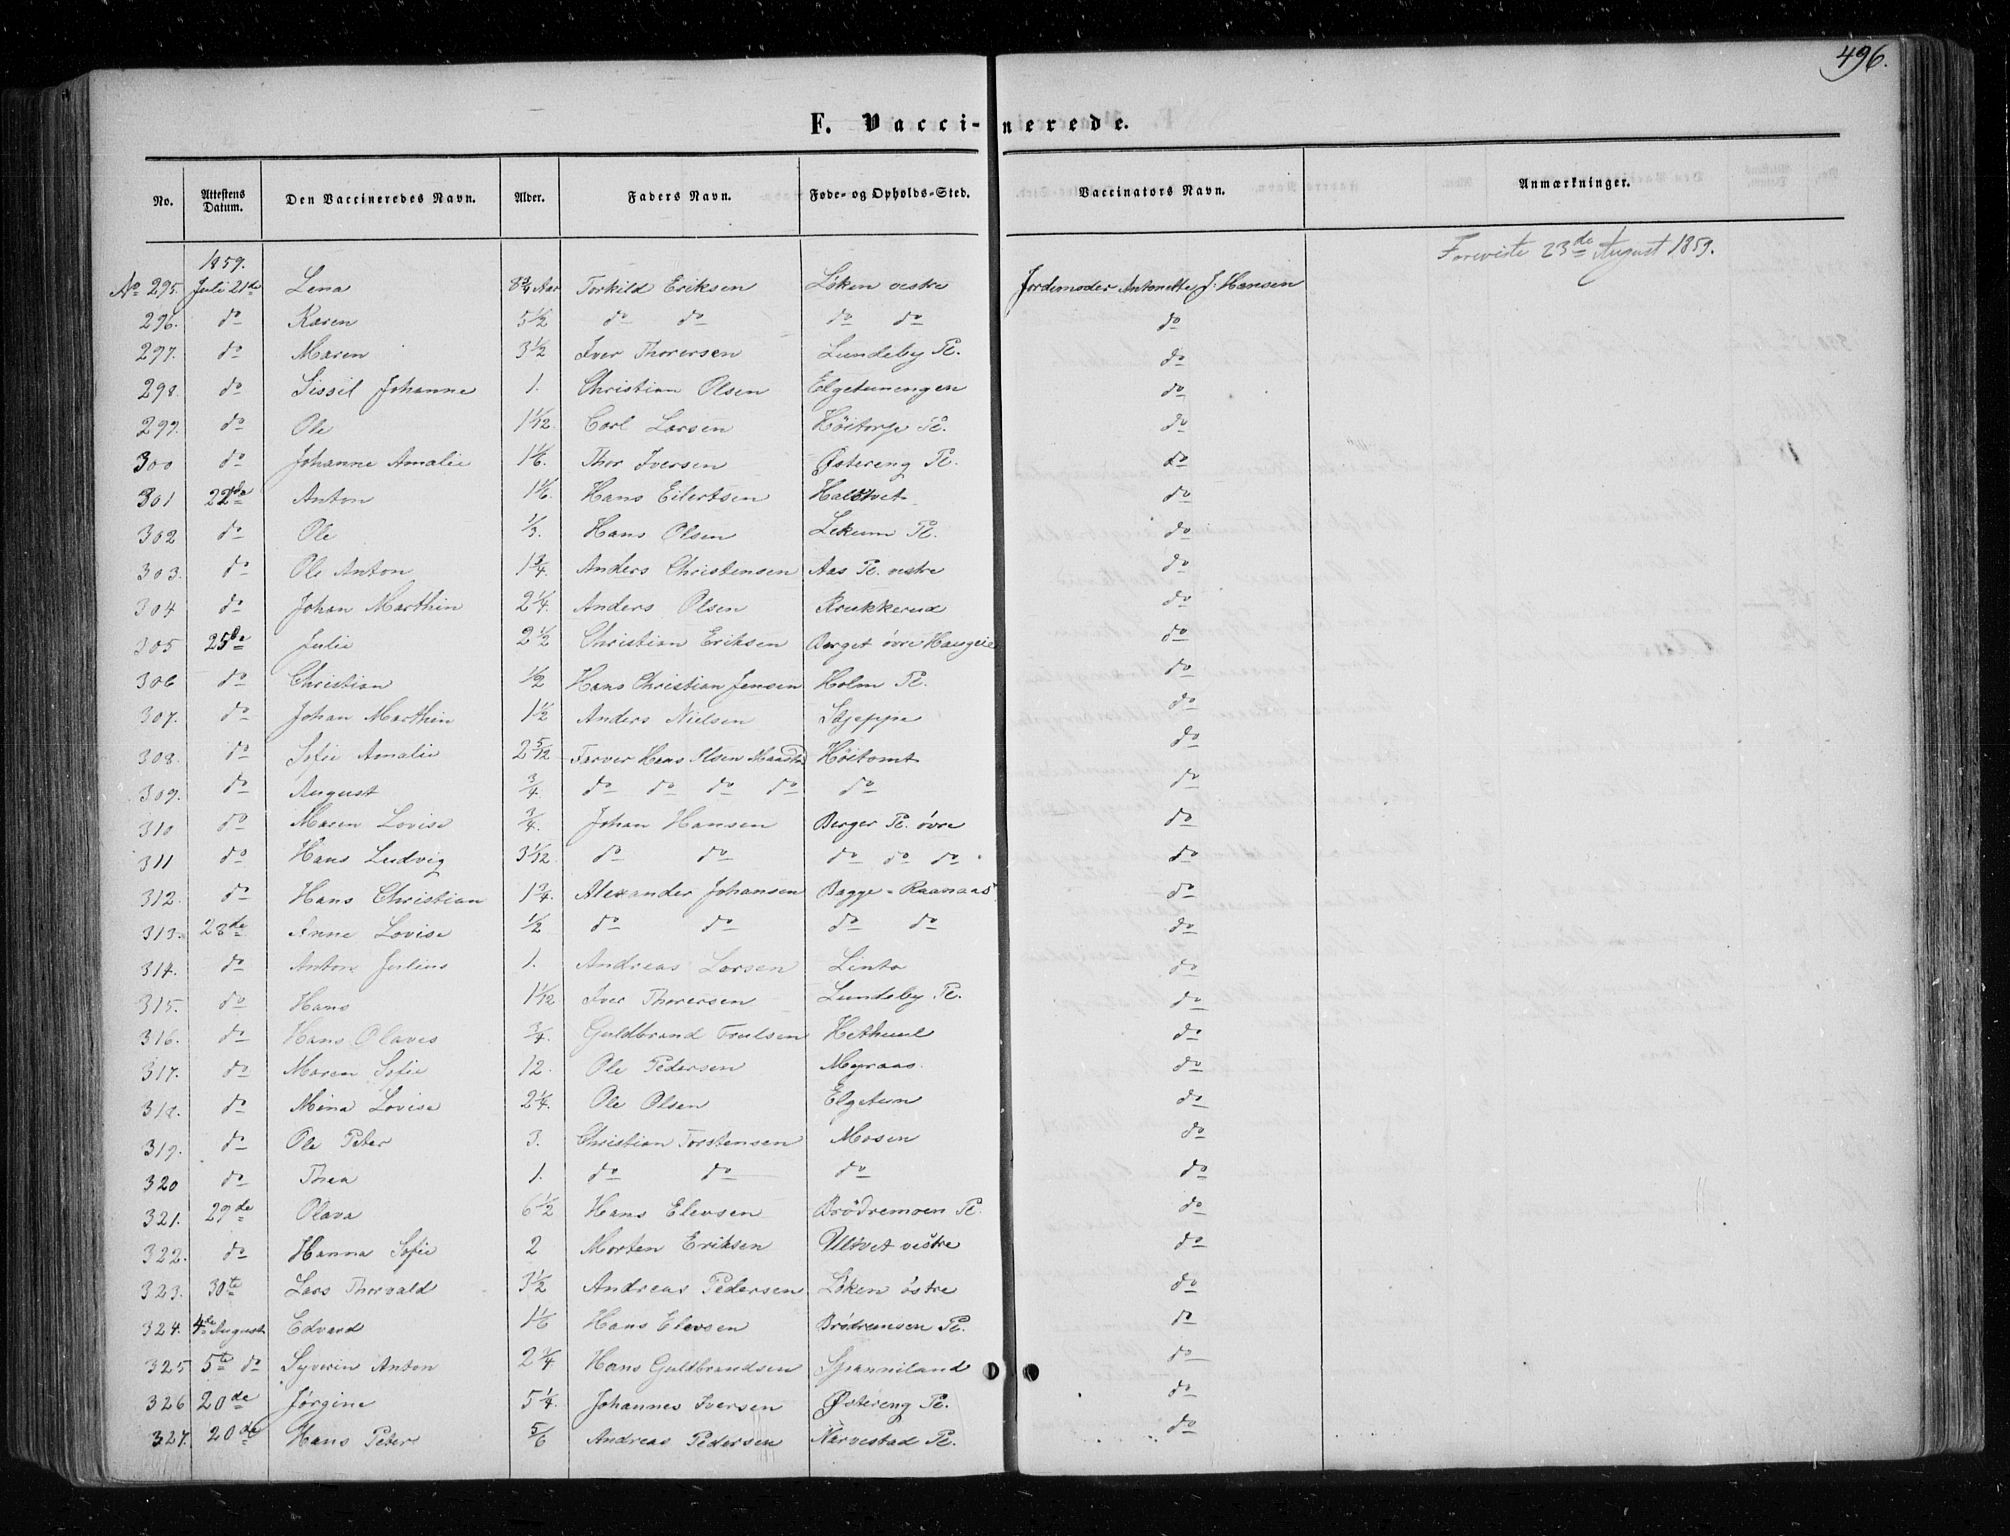 496.
F. Vaccinerede.
No. Attestens Datum. Den Vaccineredes Navn. Alder. Faders Navn. Føde- og Opholds-Sted. Vaccinators Navn. Anmærkninger.
1859. Foreviste 23de August 1859.
No 295. Juli 21de Lena Aar Torkild Eriksen Løken vestre Jordemoder Antonette J. Hansen
296. do Karen 5 1/2 do do do do do
297. do Maren 3 1/2 Iver Thorersen Lundeby Pl. do
298. do Sissil Johanne 1. Christian Olsen Elgetunengen do
299. do Ole 1 1/12. Carl Larsen Høitorp Pl. do
300 do Johanne Amalie 1 1/6. Thor Iversen Østereng Pl. do
301 22de Anton 1 1/6. Hans Eilertsen do
302 do Ole 1/3. Hans Olsen Lekum Pl. do
303. do Ole Anton 1 3/4. Anders Christensen Aas Pl. vestre do
304 do Johan Marthin 2 1/4. Anders Olsen Krukkerud do
305 25de Julie 2 1/2 Christian Eriksen Berget øvre do
306 do Christian 1/2 Hans Christian Jensen Holm Pl. do
307. do Johan Marthin 1 1/2 Anders Nielsen Skjeppe do
308. do Sofie Amalie 2 5/12 Farver Hans Olsen Høitomt do
309. do August 3/4 do do do do do do
310 do Maren Lovise 3/4. Johan Hansen Berger Pl. øvre do
311 do Hans Ludvig 3 1/12 do do do do do do
312. do Hans Christian 1 3/4. Alexander Johansen Bagge-Raanaas do
313. 28de Anne Lovise 1/2 do do do do do
314. do Anton Julius 1. Andreas Larsen Linto do
315. do Hans 1 1/12 Iver Thorersen Lundeby Pl. do
316. do Hans Olaves 3/4. Guldbrand Trulsen do
317. do Maren Sofie 12. Ole Pedersen Myraas. do
318. do Mina Lovise 2 1/4. Ole Olsen Elgetun do
319. do Ole Peter 3. Christian Torstensen Mosen do
320 do Thea 1. do do do do
321. 29de Olava 6 1/2 Hans Elevsen Brödremoen Pl. do
322. do Hanna Sofie 2 Morten Eriksen Ultvet vestre do
323. 30te Lars Thorvald 3 1/2 Andreas Pedersen Løken östre do
324. 4de August Edvard 1 1/6 Hans Elevsen Brödremoen Pl. do
325 5te do Syverin Anton 2 3/4 Hans Guldbrandsen Spanniland do
326 20de Jørgine 5 1/4. Johannes Iversen Østereng Pl. do
327. 20de Hans Peter 5/6 Andreas Pedersen Narvestad Pl. do